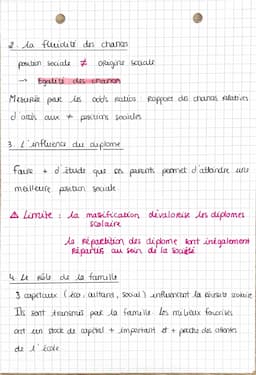 2. la fluidité des chances
position sociale ≠ origine sociale
→ Egalité des chances
Mesurée par les odds ratios rapport des chances relatives
d'accès aux + positions sociales
3. L'influence du diplome
Faire + d'étude que ses parents permet d'attendre une
meilleure position sociale
⚠ Limite : la massification dévalorise les diplomes
scolaire
la répartition des diplome sont inégalement
répartis au sein de la société
4. Le rôle de la famille
3 capitaux (éco, culturel, social) influencent la réussite scolaire
Ils sont transmis par la famille. Les milieux favorisés
ont un stock de capital + important et + proche des attentes
de l'école